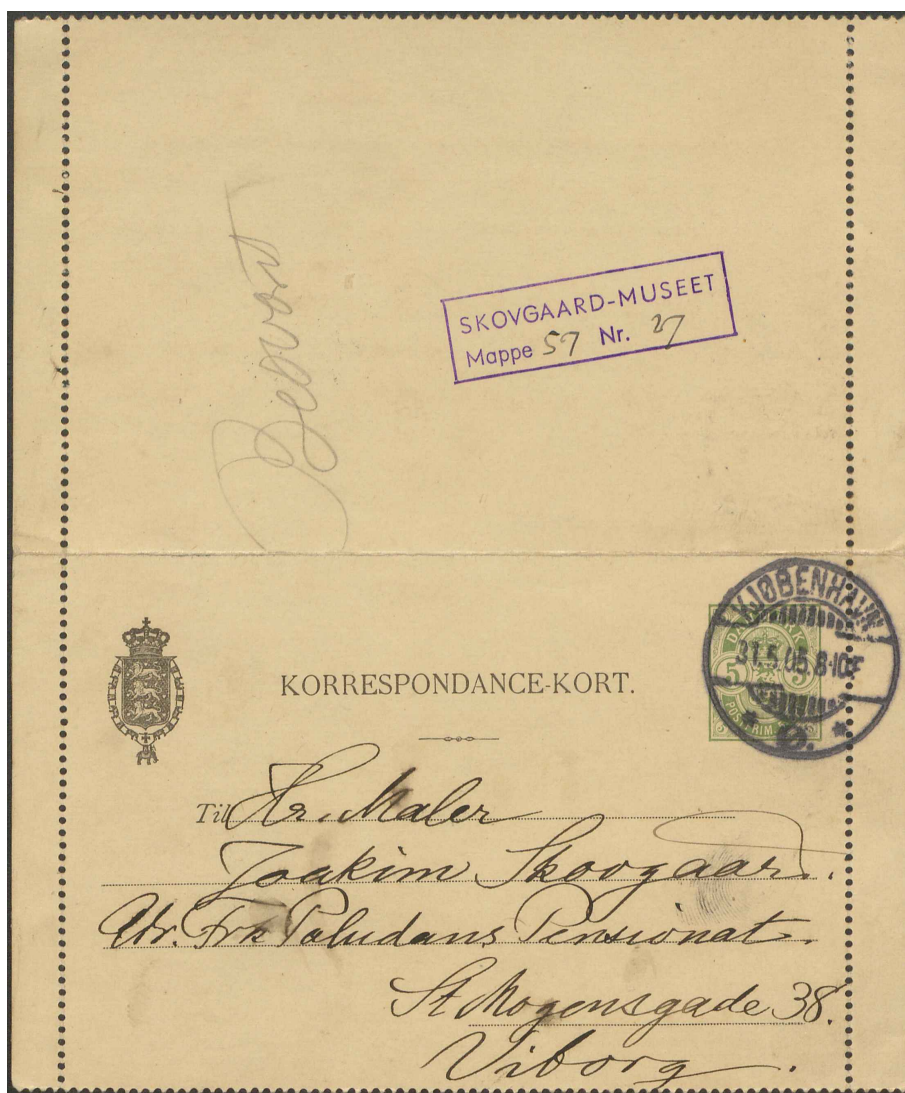 Besvart
SKOVGAARD-MUSEET
Mappe 57 Nr. 27
KJØBENHAVN
31.5.05.8-10F
Ø.
DANMARK
5 5
POSTFRIM.
KORRESPONDANCE-KORT.
Til Hr. Maler
Joakim Skovgaard.
Adr. Frk Paludans Pensionat.
St Mogensgade 38.
Viborg.